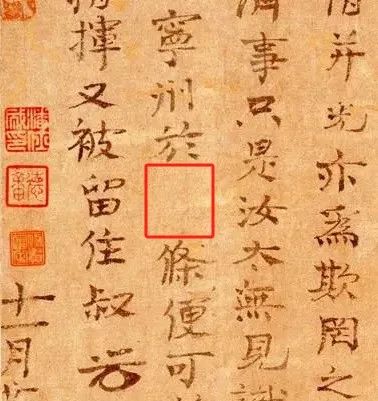 并、亦為欺罔之
濟事只是汝太無見識
寧州於條便可
指揮又被留住叔
十一月